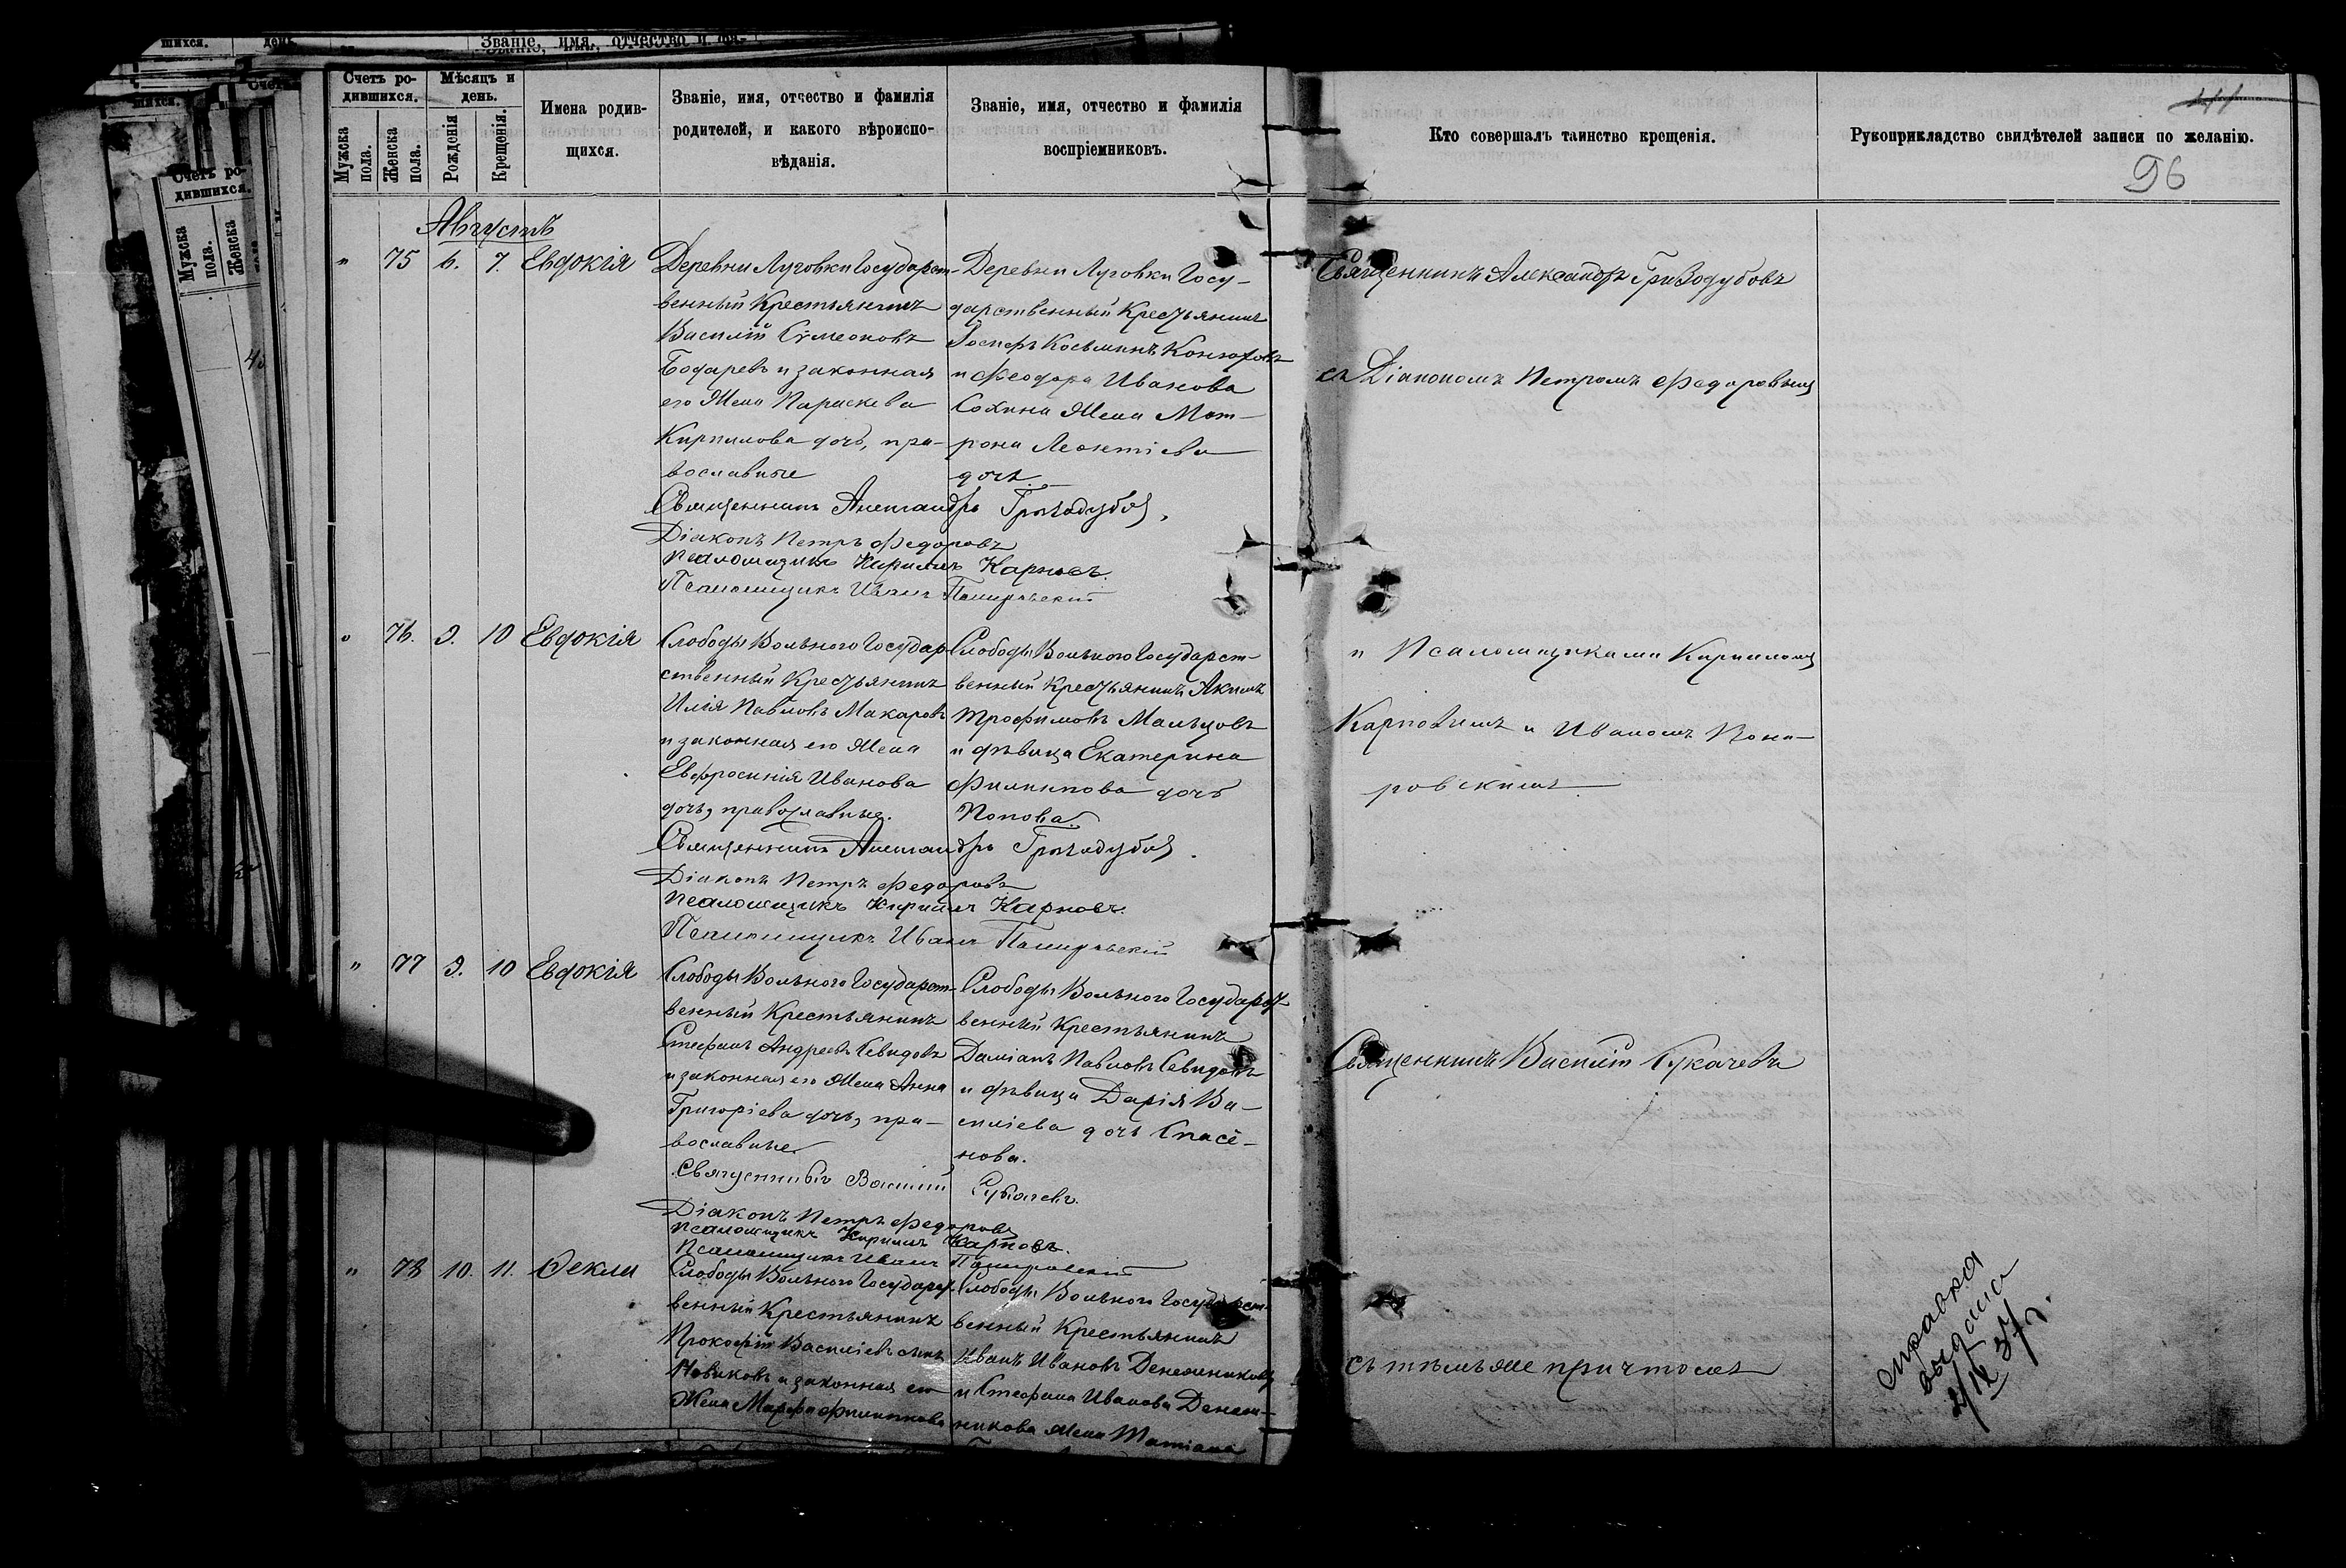 шихся.
день.
Званіе, имя, отчество и фа-
Счетъ ро-
дившихся.
Мужска пола.
Женска
Счетъ ро-
дившихся.
Мѣсяцъ и
день.
Мужска пола.
Женска пола.
Рожденія
Крещенія.
Имена родив-
щихся.
Званіе, имя, отчество и фамилія
родителей, и какого вѣроиспо-
вѣданія.
Званіе, имя, отчество и фамилія
воспріемниковъ.
Кто совершалъ таинство крещенія.
Рукоприкладство свидѣтелей записи по желанію.
96
Августъ
" 75 6. 7. Евдокія
Деревни Луговки Государст-
венный Крестьянинъ
Василій Сѵмеоновъ
Бочаревъ и законная
его Жена Параскева
Кириллова дочь, пра-
вославные
Деревни Луговки Госу-
дарственный Крестьянинъ
Іосифъ Косьминъ
и Феодора Иванова
Сохина Жена Мат-
рона Леонтіева
дочь.
Священникъ Александръ Гризодубовъ
съ Діакономъ Петромъ Федоровымъ
Священникъ Александръ Гризодубовъ,
Діаконъ Петръ Федоровъ
Псаломщикъ Кириллъ Карповъ.
Псаломщикъ Иванъ
" 76. 9. 10 Евдокія
Слободы Вольного Государ-
ственный Крестьянинъ
Илія Павловъ Макаровъ
и законная его Жена
Евфросинія Иванова
дочь, православные.
Слободы Вольного Государст-
венный Крестьянинъ Акимъ
Трофимовъ Мальцовъ
и дѣвица Екатерина
Филиппова дочь
Попова.
и Псаломщиками Кирилломъ
Карповымъ и Иваномъ
ровскимъ
Священникъ Александръ Гризодубовъ.
Діаконъ Петръ Федоровъ
Псаломщикъ Кириллъ Карповъ.
Псаломщикъ Иванъ
" 77 9. 10 Евдокія
Слободы Вольного Государст-
венный Крестьянинъ
Стефанъ Андреевъ Севидовъ
и законная его Жена Анна
Григоріева дочь, пра-
вославные
Слободы Вольного Государст-
венный Крестьянинъ
Даміанъ Павловъ Севидовъ
и дѣвица Дарія Ва-
силіева дочь Спасё-
нова.
Священникъ Василій Сукачевъ
Священникъ Василій Сукачевъ.
Діаконъ Петръ Федоровъ
Псаломщикъ Кириллъ Карповъ.
Псаломщикъ Иванъ
" 78 10. 11. Ѳекла
Слободы Вольного Государст-
венный Крестьянинъ
Прокофій Василіевъ сынъ
Новиковъ и законная его
Жена Марфа Филиппова
Слободы Вольного Государст-
венный Крестьянинъ
Иванъ Ивановъ Денежниковъ
и Стефана Иванова Денеж-
никова Жена Татіана
съ тѣмъ же причтомъ
справка
выдана
2/IX 37 г.